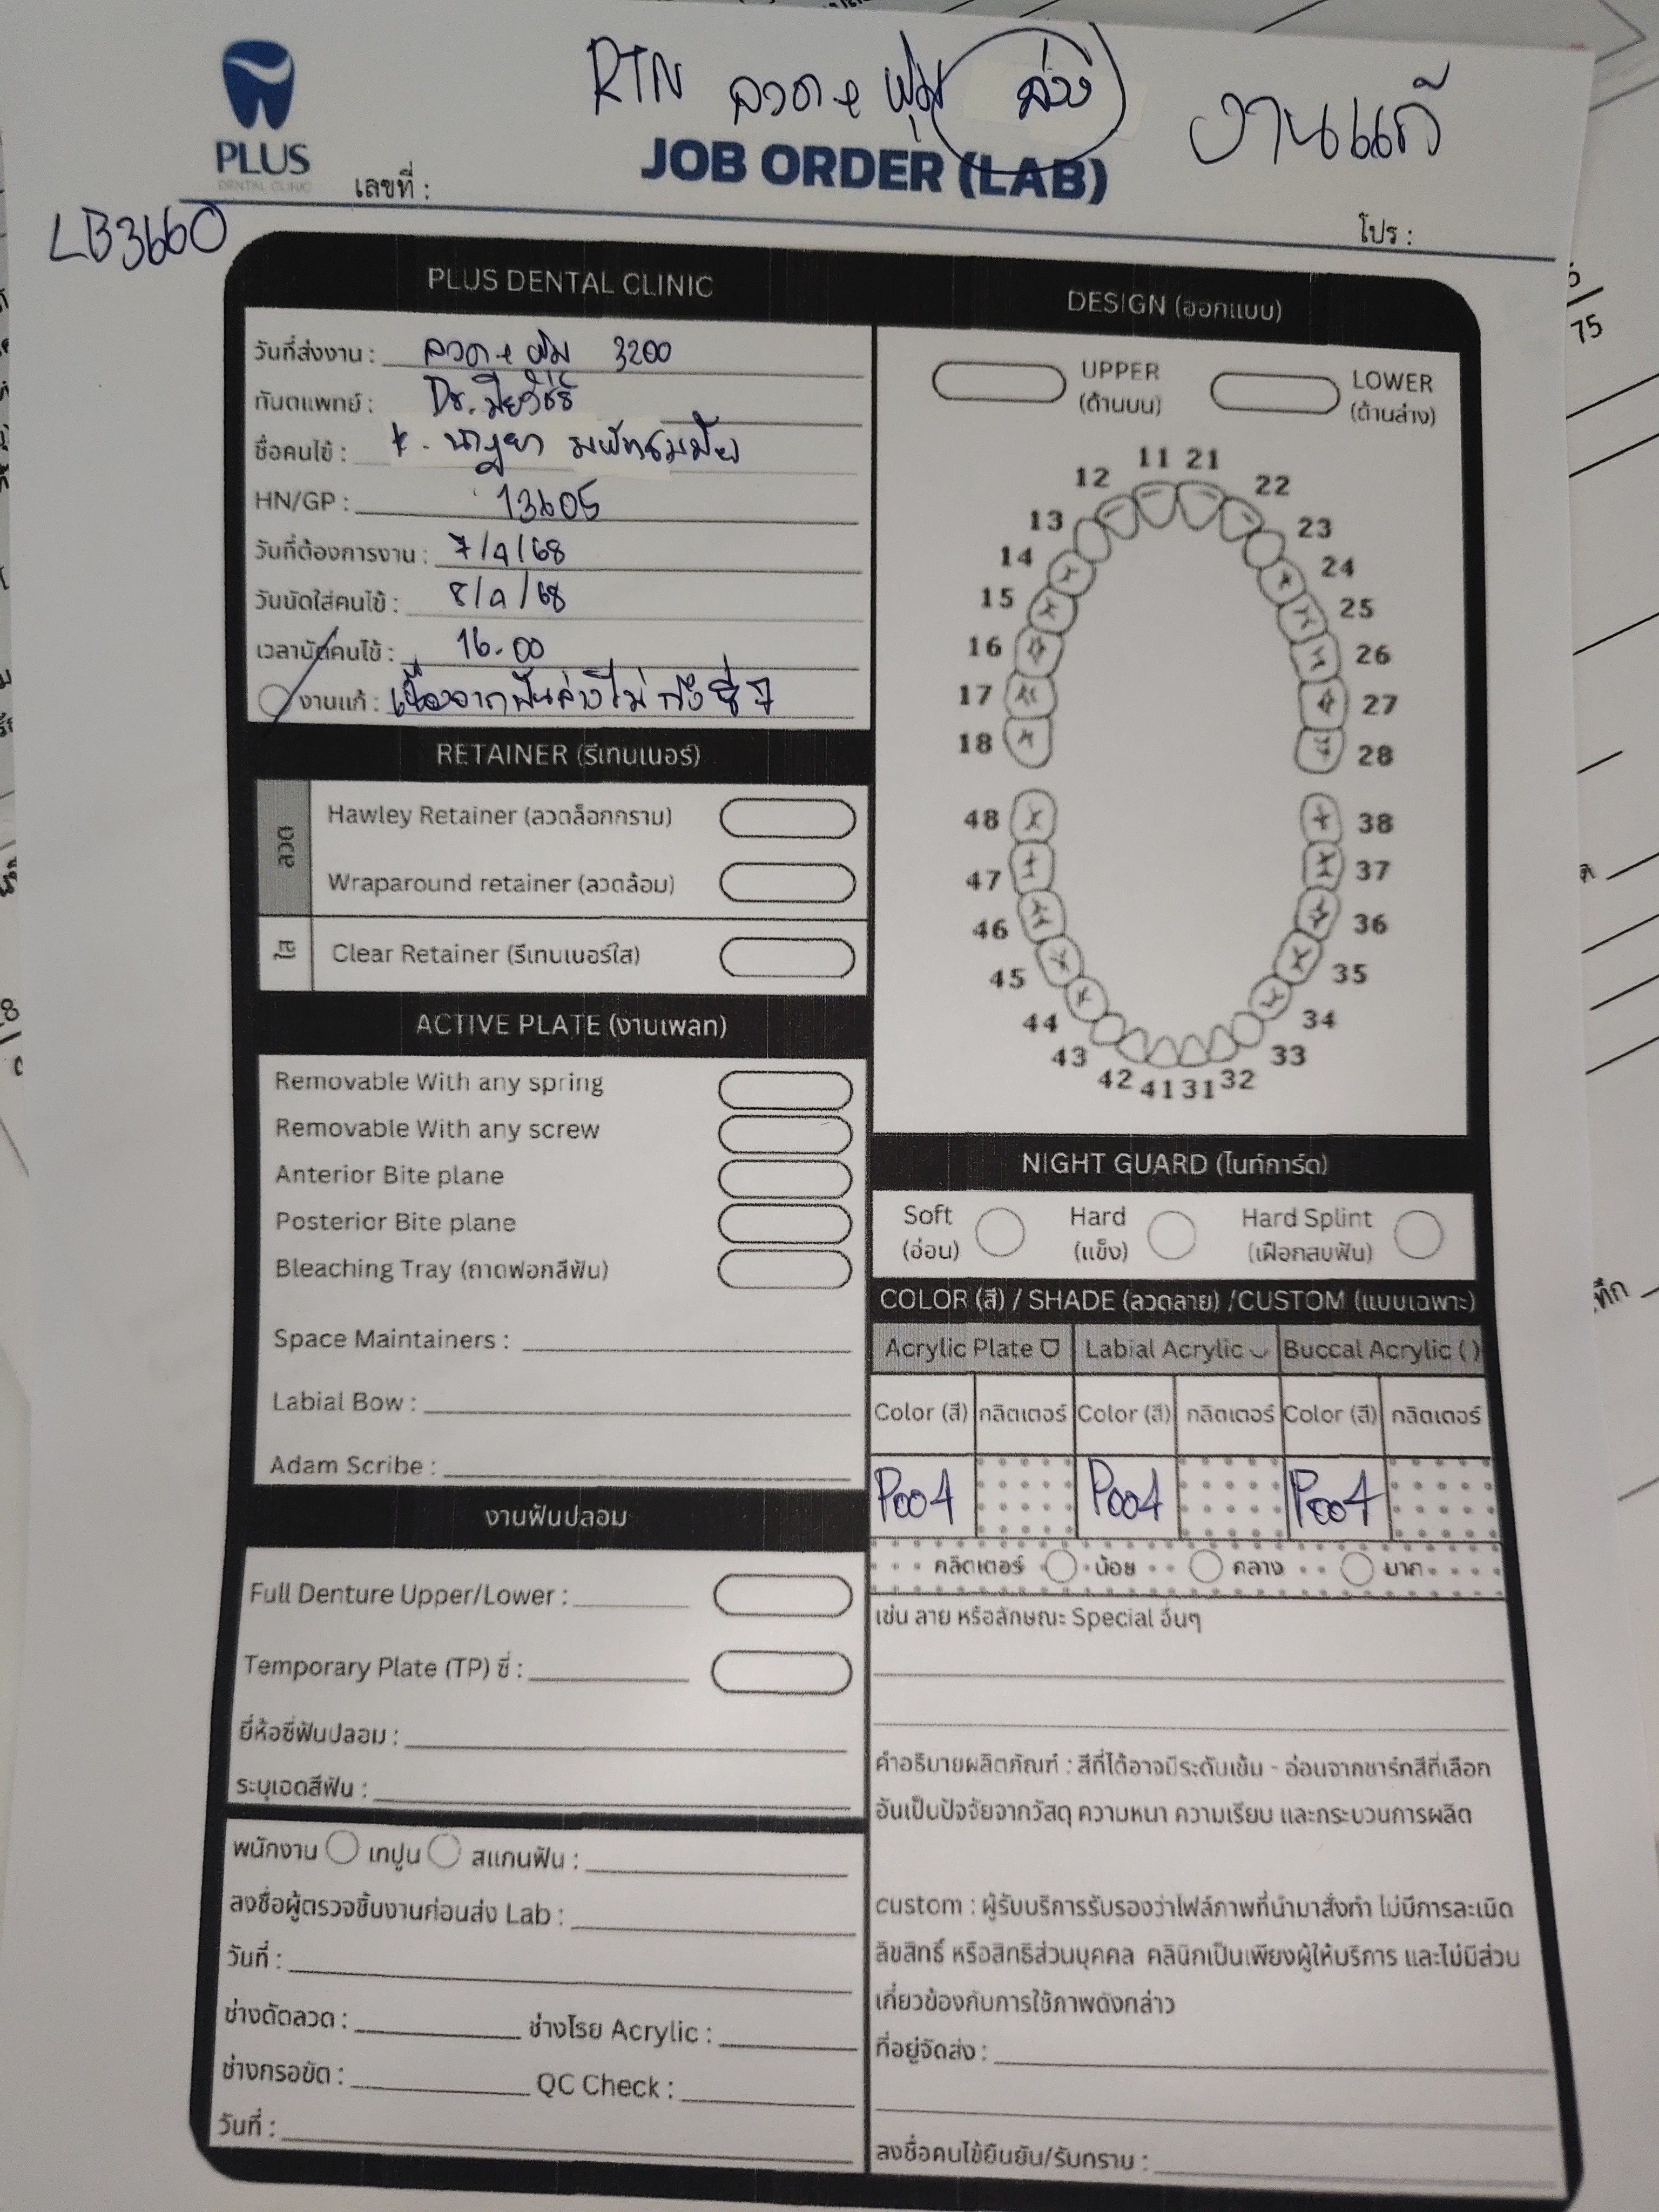 RTN ลวด + พิม ล่าง งานแก้
PLUS
DENTAL CLINIC
JOB ORDER (LAB)
เลขที่ :
โปร :
LB3660
PLUS DENTAL CLINIC
วันที่ส่งงาน : ลวด + พิม 3200
ทันตแพทย์ : Dr.
ชื่อคนไข้ : K. นาฎยา
HN/GP : 13605
วันที่ต้องการงาน : 7/9/68
วันนัดใส่คนไข้ : 8/9/68
เวลานัดคนไข้ : 16.00
งานแก้ : เนื่องจากฟันล่างไม่ถึงซี่ 7
RETAINER (รีเทนเนอร์)
ลวด
Hawley Retainer (ลวดล็อกกราม)
Wraparound retainer (ลวดล้อม)
ใส
Clear Retainer (รีเทนเนอร์ใส)
ACTIVE PLATE (งานเพลท)
Removable With any spring
Removable With any screw
Anterior Bite plane
Posterior Bite plane
Bleaching Tray (ถาดฟอกสีฟัน)
Space Maintainers :
Labial Bow :
Adam Scribe :
งานฟันปลอม
Full Denture Upper/Lower :
Temporary Plate (TP) ซี่ :
ยี่ห้อซี่ฟันปลอม :
ระบุเฉดสีฟัน :
พนักงาน เทปูน สแกนฟัน :
ลงชื่อผู้ตรวจชิ้นงานก่อนส่ง Lab :
วันที่ :
ช่างดัดลวด : ช่างโรย Acrylic :
ช่างกรอขัด : QC Check :
วันที่ :
DESIGN (ออกแบบ)
UPPER
(ด้านบน)
LOWER
(ด้านล่าง)
11 21
12 22
13 23
14 24
15 25
16 26
17 27
18 28
48 38
47 37
46 36
45 35
44 34
43 33
42 41 31 32
NIGHT GUARD (ไนท์การ์ด)
Soft Hard Hard Splint
(อ่อน) (แข็ง) (เฝือกสบฟัน)
COLOR (สี) / SHADE (ลวดลาย) /CUSTOM (แบบเฉพาะ)
Acrylic Plate Labial Acrylic Buccal Acrylic ( )
Color (สี) กลิตเตอร์ Color (สี) กลิตเตอร์ Color (สี) กลิตเตอร์
P004 P004 P004
กลิตเตอร์ น้อย กลาง มาก
เช่น ลาย หรือลักษณะ Special อื่นๆ
คำอธิบายผลิตภัณฑ์ : สีที่ได้อาจมีระดับเข้ม - อ่อนจากชาร์ทสีที่เลือก
อันเป็นปัจจัยจากวัสดุ ความหนา ความเรียบ และกระบวนการผลิต
custom : ผู้รับบริการรับรองว่าไฟล์ภาพที่นำมาสั่งทำ ไม่มีการละเมิด
ลิขสิทธิ์ หรือสิทธิส่วนบุคคล คลินิกเป็นเพียงผู้ให้บริการ และไม่มีส่วน
เกี่ยวข้องกับการใช้ภาพดังกล่าว
ที่อยู่จัดส่ง :
ลงชื่อคนไข้ยืนยัน/รับทราบ :